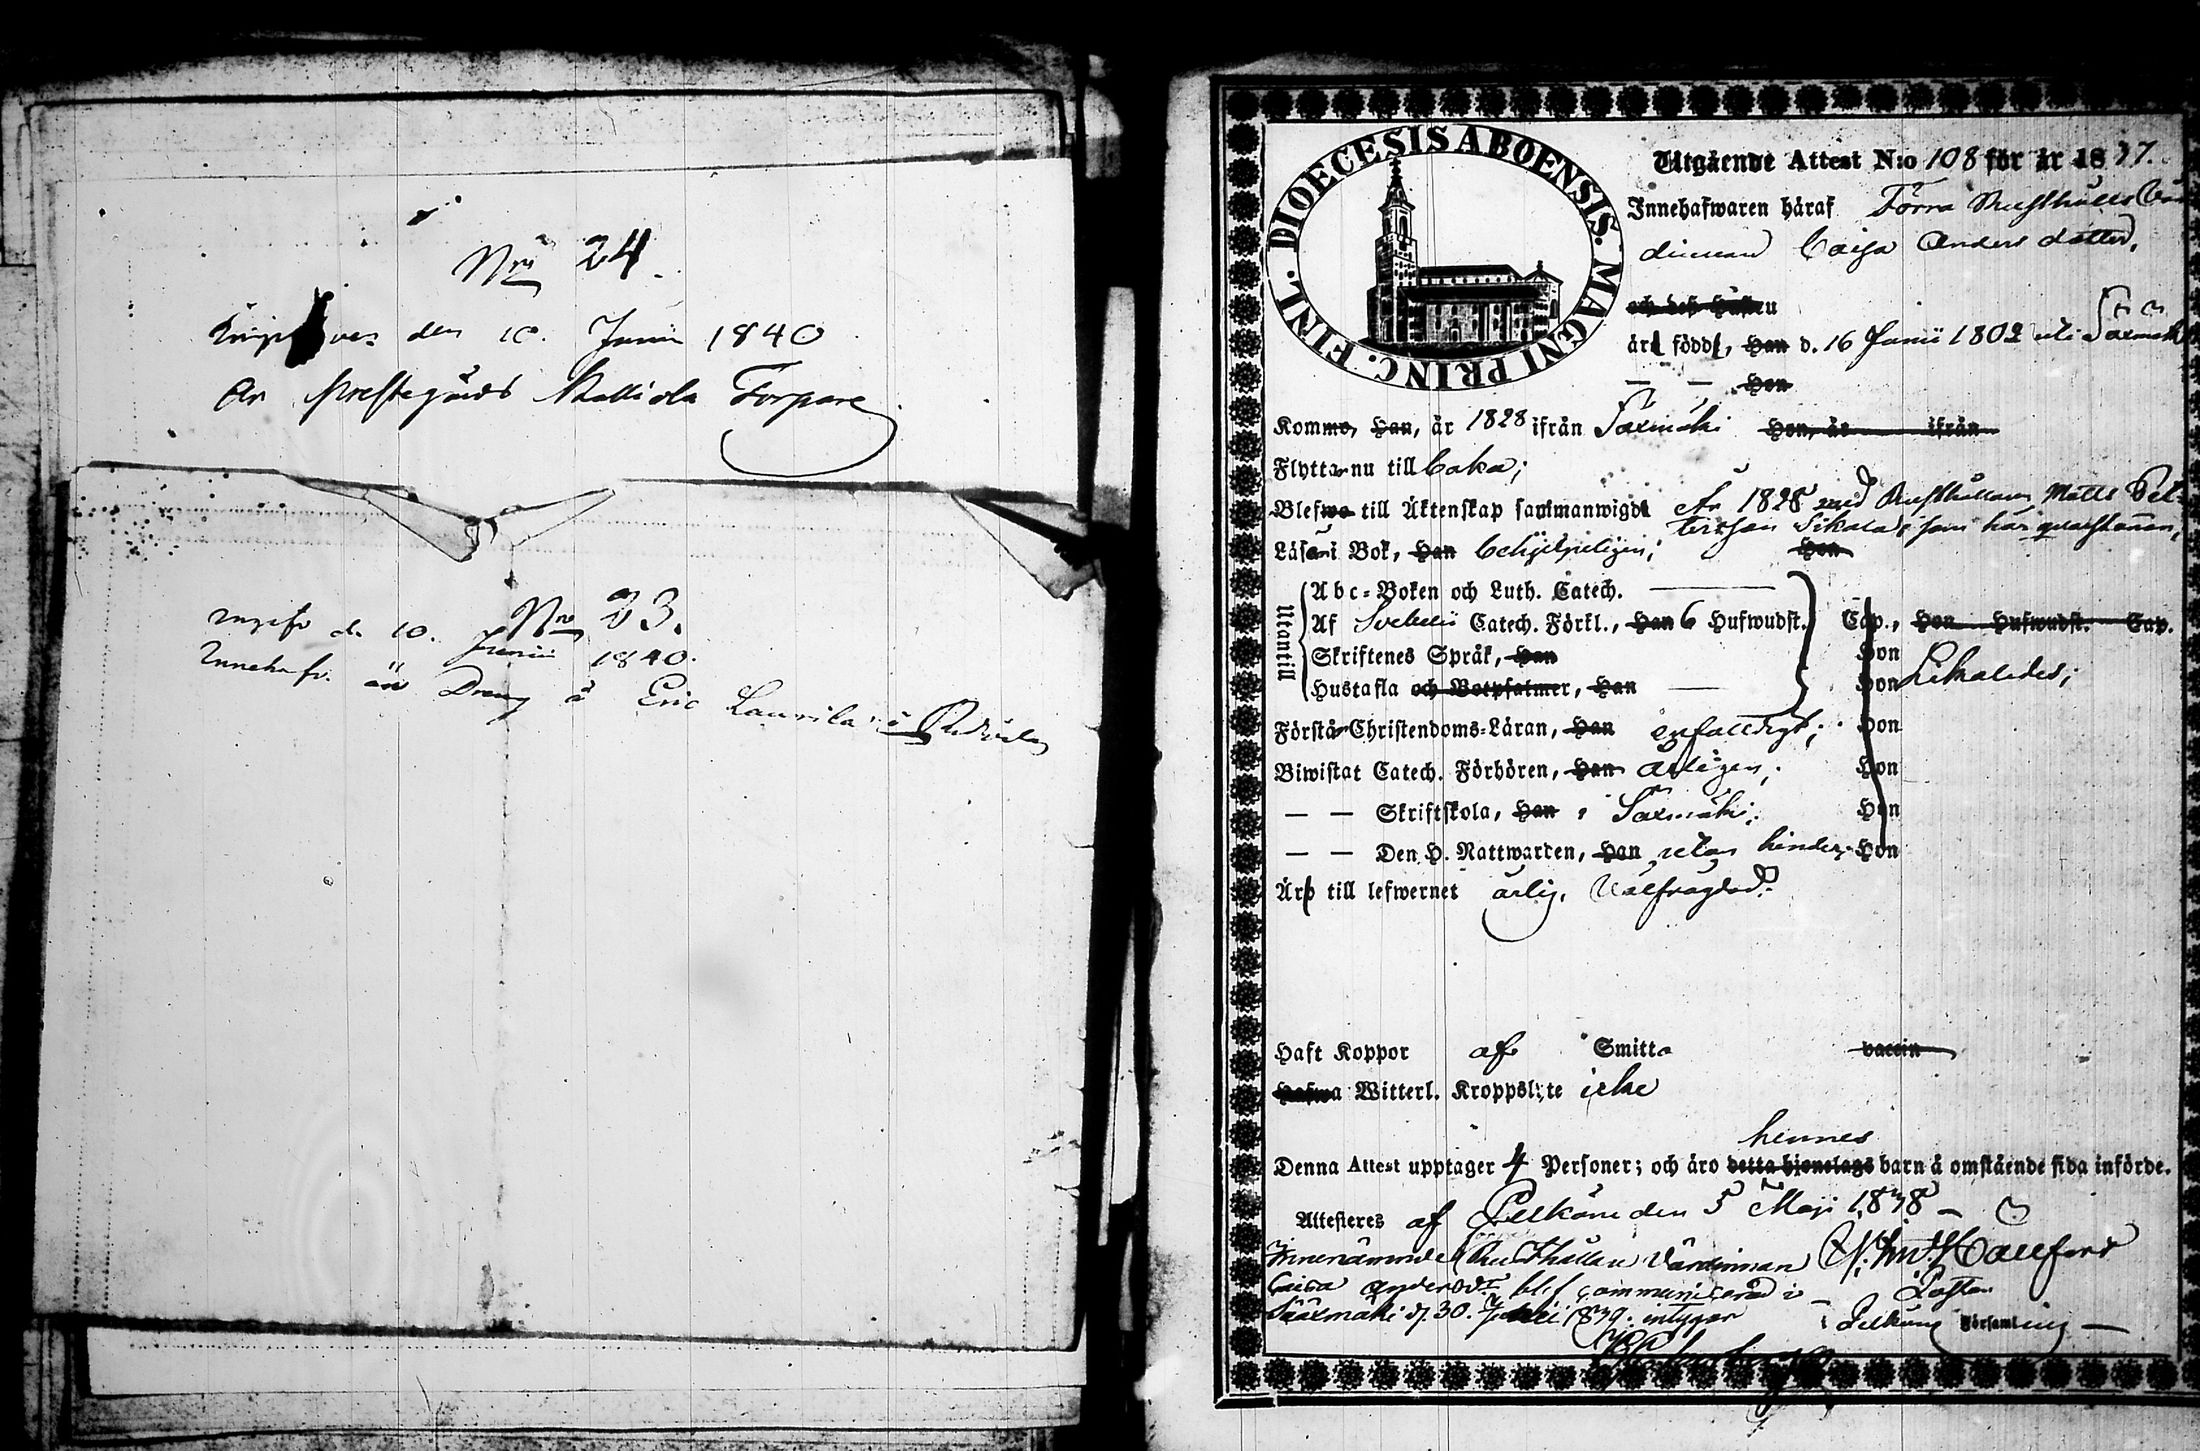 Nro 24.
den 10. Junii 1840
är Prestegårds Torpare
Nro 23.
d. 10. Junii 1840.
Innehafv. är Dreng å Eric Laurila i
DIOECESIS ABOENSIS. MAGNI PRINC. FINL.
Utgående Attest N:o 108 för år 1837.
Innehafwaren häraf Förra Rusthålls Vär
dinnan Caisa Anders dotter,
och deß Hustru
äro födde, Han d. 16 Junii 1802 uti Säxmäki
— — Hon
Kommo, Han, år 1828 ifrån Säxmäki Hon, år ifrån
Flytta nu till baka;
Blefwo till Äktenskap sammanwigde År 1828 med Rusthållaren Matts
Sikala, som här qvarstannar,
Läsa i Bok, Han behjelpeligen; Hon
Utantill
Abc-Boken och Luth. Catech.
Af Svebelii Catech. Förkl., Han 6 Hufwudst. Cap., Hon Hufwudst. Cap.
Skriftenes Språk, Han Hon
Hustafla och Botpsalmer, Han — Hon Likaledes;
Förstå Christendoms-Läran, Han enfaldigt; Hon
Biwistat Catech. Förhören, Han årligen; Hon
— — Skriftskola, Han i Säxmäki; Hon
— — Den H. Nattwarden, Han utan hinder; Hon
Äro till lefwernet ärlig, Välfrägdad.
Haft Koppor af Smitta vaccin
Hafwa Witterl. Kroppslyte icke
hennes
Denna Attest upptager 4 Personer; och äro detta hjonelags barn å omstående sida införde.
Attesteres af Pelkäne den 5 Maji 1838 —
Innenämnde Rusthållare Värdinnan
Caisa Andersdr blef communicerad i Pastor
Sääxmäki d. 30. Junii 1839. intygar i Pelkäne Församling —